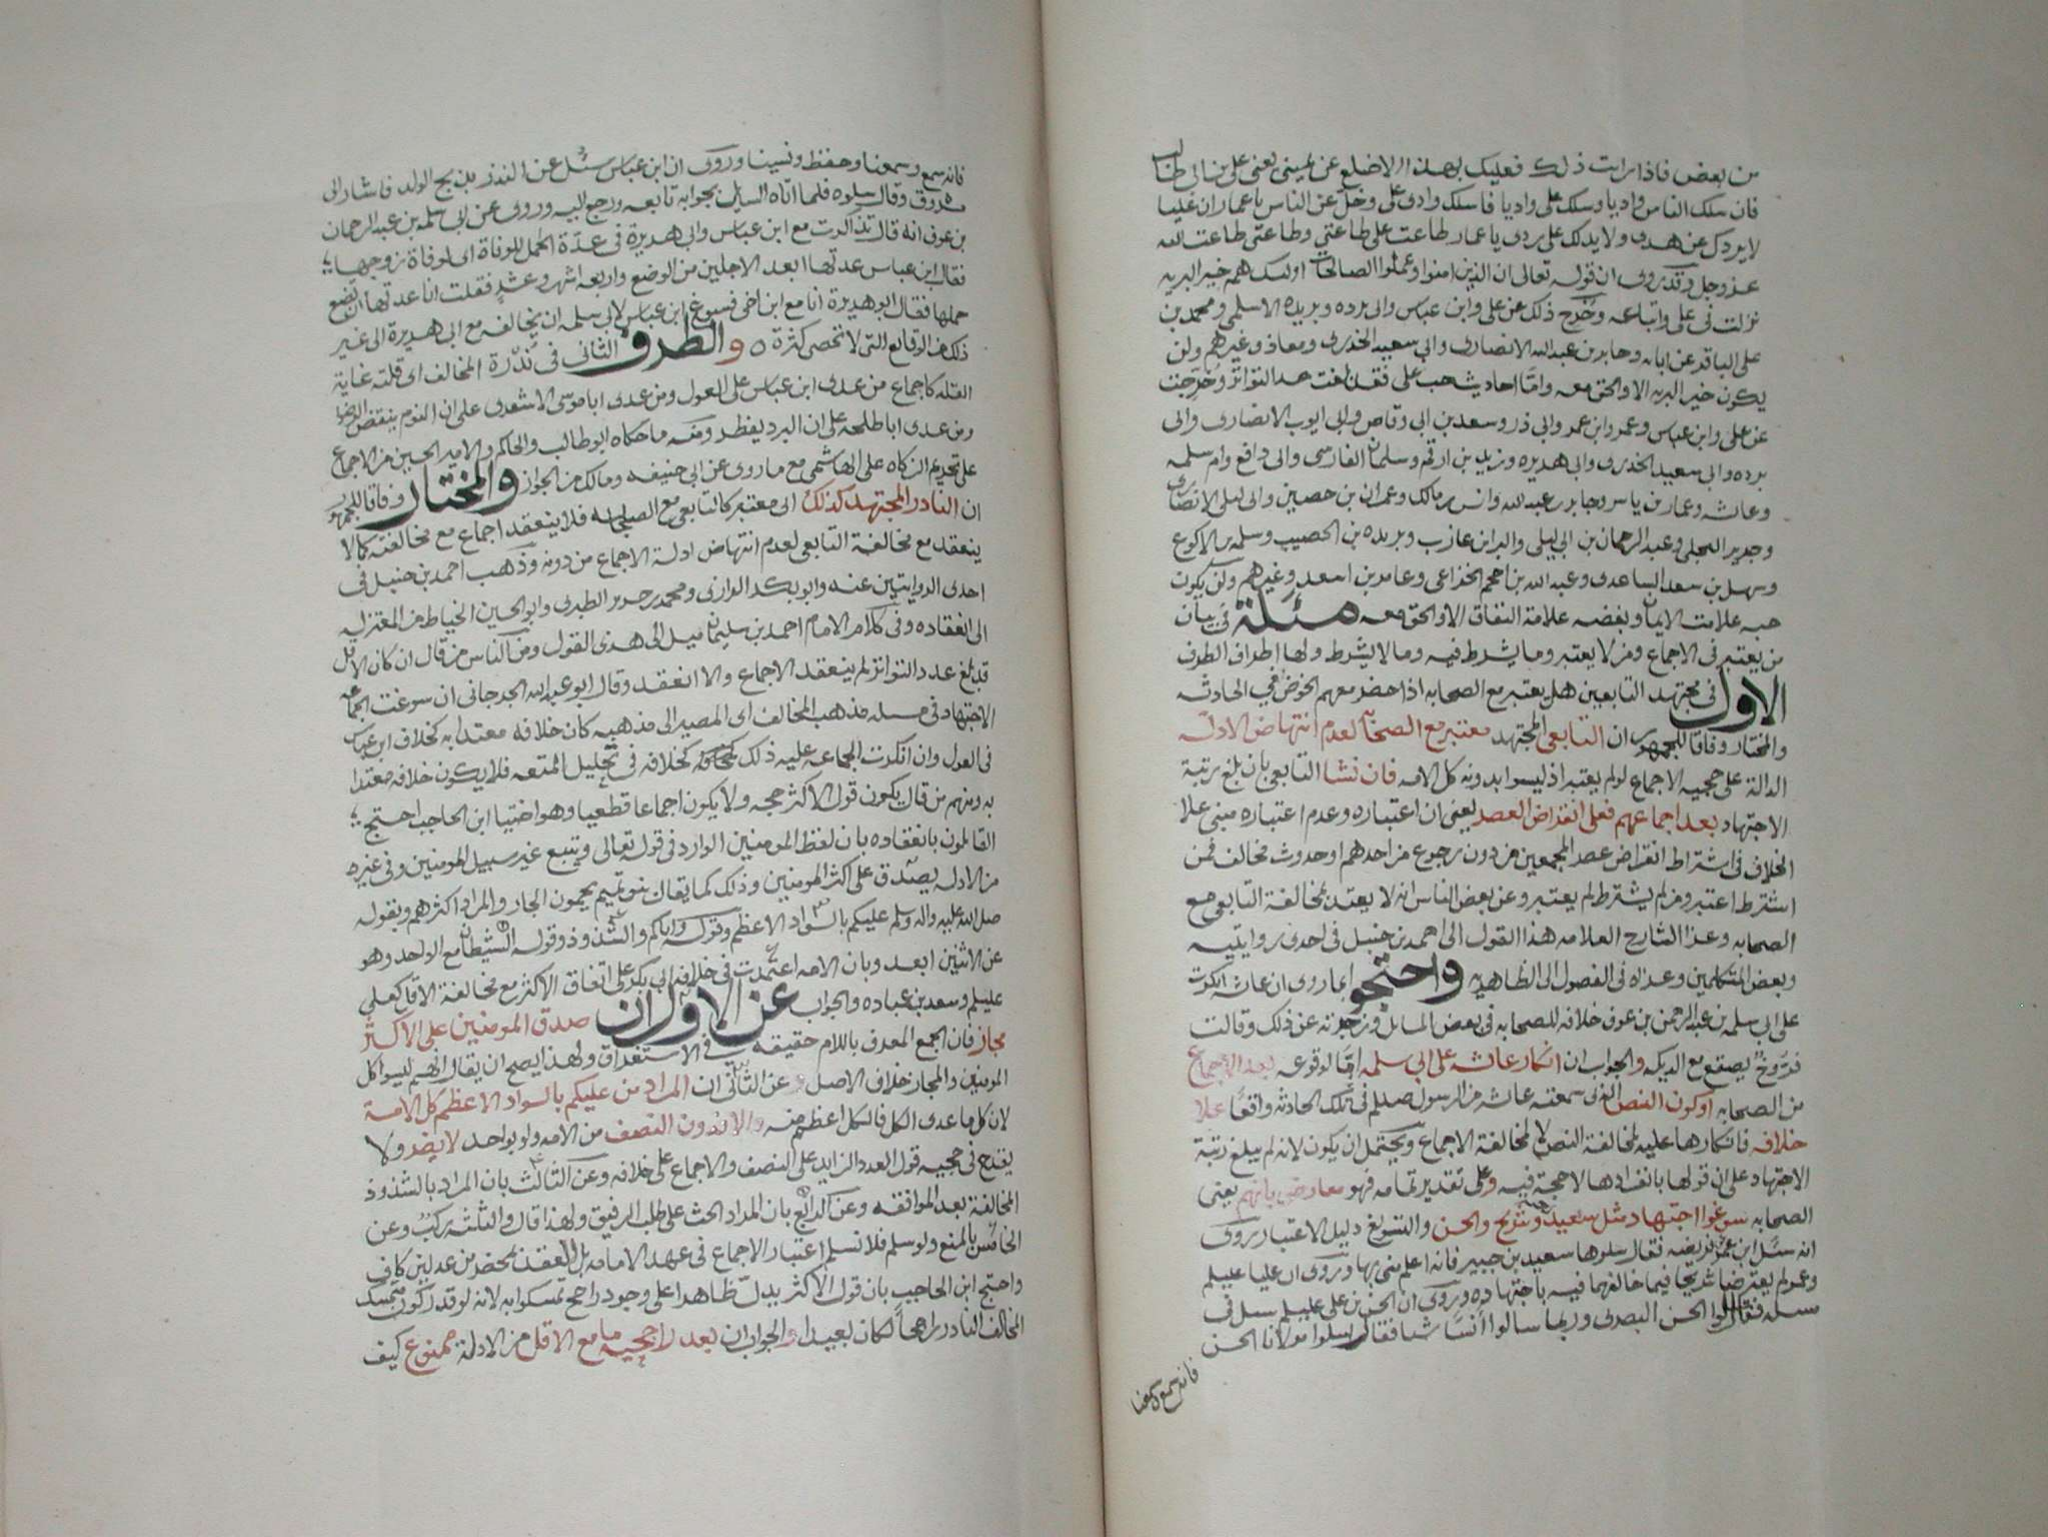 من بعض فاذا رايت ذلك فعليك بهذا الاضلع عن يميني يعني علي بن ابي طالب
فان سلك الناس واديا وسلك علي واديا فاسلك وادي علي وخلّ عن الناس يا عمار ان عليا
لا يردك عن هدى ولا يدلك على ردى يا عمار طاعت علي طاعتي وطاعتي طاعت الله
عز وجل وقد روى ان قوله تعالى ان الذين امنوا وعملوا الصالحات اولئك هم خير البريه
نزلت في علي واتباعه وخُرّج ذلك عن علي وابن عباس وابي برده وبريده الاسلمي ومحمد بن
علي الباقر عن ابائه وجابر بن عبد الله الانصاري وابي سعيد الخدري ومعاذ وغيرهم ولن
يكون خير البريه الا والحق معه وامّا احاديث حب علي فقد بلغت حد التواتر وخُرّجت
عن علي وابن عباس وعمر وابن عمر وابي ذر وسعد بن ابي وقاص وابي ايوب الانصاري وابي
برده وابي سعيد الخدري وابي هديره وزيد بن ارقم وسلمان الفارسي وابي رافع وام سلمه
وعائشه وعمار بن ياسر وجابر بن عبد الله وانس بن مالك وعمران بن حصين وابي ليلى الانصاري
وجرير البجلي وعبد الرحمان بن ابي ليلى والبرا بن عازب وبريده بن الحصيب وسلمه بن الاكوع
وسهل بن سعد الساعدي وعبد الله بن احجم الخزاعي وعامر بن سعد وغيرهم ولن يكون
حبه علامت الايمان وبغضه علامة النفاق الا والحق معه مسئلة في بيان
من يعتبر في الاجماع ومن لا يعتبر وما يشرط فيه وما لا يشرط ولها اطراف الطرف
الاول في مجتهد التابعين هل يعتبر مع الصحابه اذا حضر معهم الخوض في الحادثه
والمختار وفاقا للجمهور ان التابعي المجتهد معتبر مع الصحابه لعدم انتهاض الادلّه
الدالة على حجيه الاجماع لو لم يعتبر اذ ليسوا بدونه كل الامه فان نشا التابعي بان بلغ رتبة
الاجتهاد بعد اجماعهم فعلى انقراض العصر يعني ان اعتباره وعدم اعتباره مبني علا
الخلاف في اشتراط انقراض عصر المجمعين من دون رجوع من احدهم او حدوث مخالف فمن
اشترط اعتبر ومن لم يشترط لم يعتبر وعن بعض الناس انه لا يعتد بمخالفة التابعي مع
الصحابه وعزا الشارح العلامه هذا القول الى احمد بن حنبل في احدى روايتيه
وبعض المتكلمين وعزاه في الفصول الى الظاهريه واحتجوا بما روى ان عائشه انكرت
على ابي سلمه بن عبد الرحمن بن عوف خلافه للصحابه في بعض المسائل وزجرته عن ذلك وقالت
فرّوخ يصقع مع الديكه والجواب ان انكار عائشه على ابي سلمه امّا لوقوعه بعد الاجماع
من الصحابه او كون النص الذي سمعته عائشه من الرسول صلعم في تلك الحادثه واقعًا علا
خلافه فانكارها عليه لمخالفة النص لا لمخالفة الاجماع ويحتمل ان يكون لانه لم يبلغ رتبة
الاجتهاد على ان قولها بانفرادها لا حجة فيه وعلى تقدير تمامه فهو معارض بانهم يعني
الصحابه سوغوا اجتهاد مثل سعيد وشريح والحسن والتسويغ دليل الاعتبار روى
انه سئل ابن عمر فريضه فقال سلوها سعيد بن جبير فانه اعلم مني بها وروى ان عليا عليلم
وعمر لم يعترضا شريحا فيما خالفهما فيه باجتهاده وروى ان الحسن بن علي عليلم سئل في
مسله فقال سلوا الحسن البصري وربما سالوا انسًا شيا فقال سلوا مولانا الحسن
فانه سمع وسمعنا
فانه سمع وسمعنا وحفظ ونسينا وروى ان ابن عباس سئل عن النذر بذبح الولد فاشار الى
مسروق وقال سلوه فلما اتاه السايل بجوابه تابعه ورجع اليه وروى عن ابي سلمه بن عبد الرحمان
بن عوف انه قال تذاكرت مع ابن عباس وابي هديرة في عدّة الحمل للوفاة اي لوفاة زوجها
فقال ابن عباس عدتها ابعد الاجلين من الوضع واربعه اشهر وعشر فقلت انا عدتها ان تضع
حملها فقال ابو هديرة انا مع ابن اخي فسوغ ابن عباس لابي سلمه ان يخالفه مع ابي هديرة الى غير
ذلك من الوقايع التي لا تحصى كثرة ٥ والطرف الثاني في نُدْرة المخالف اي قلته غاية
القله كاجماع من عدى ابن عباس على العول ومن عدى ابا موسى الاشعري على ان النوم ينقض الوضو
ومن عدى ابا طلحه على ان البرد يفطر ومنه ما حكاه ابو طالب والحاكم والامير الحسين من الاجماع
على تحريم الزكاه على الهاشمي مع ما روى عن ابي حنيفه ومالك من الجواز والمختار وفاقا للجمهور
ان النادر المجتهد كذلك اي معتبر كالتابعي مع الصحابه فلا ينعقد اجماع مع مخالفته كما لا
ينعقد مع مخالفة التابعي لعدم انتهاض ادلة الاجماع من دونه وذهب احمد بن حنبل في
احدى الروايتين عنه وابو بكر الرازي ومحمد بن جرير الطبري وابو الحسين الخياط من المعتزليه
الى انعقاده وفي كلام الامام احمد بن سليمان ميل الى هذى القول ومن الناس من قال ان كان الاقل
قد بلغ عدد التواتر لم ينعقد الاجماع والا انعقد وقال ابو عبد الله الجرجاني ان سوغت الجماعه
الاجتهاد في مسله مذهب المخالف اي المصير الى مذهبه كان خلافه معتدا به كخلاف ابن عباس
في العول وان انكرت الجماعه عليه ذلك كخلافه في تحليل المتعه فلا يكون خلافه معتدا
به ومنهم من قال يكون قول الاكثر حجه ولا يكون اجماعا قطعيا وهو اختيار ابن الحاجب احتج
القائلون بانعقاده بان لفظ المومنين الوارد في قوله تعالى ويتبع غير سبيل المومنين وفي غيره
من الادله يصدق على اكثر المومنين وذلك كما يقال بنو تميم يحمون الجار والمراد اكثرهم وبقوله
صل الله عليه واله وسلم عليكم بالسواد الاعظم وقوله واياكم والشذوذ وقوله الشيطان مع الواحد وهو
عن الاثنين ابعد وبان الامه اعتمدت في خلافه ابي بكر على اتفاق الاكثر مع مخالفة الاقل كعلي
عليلم وسعد بن عباده والجواب عن الاول ان صدق المومنين على الاكثر
مجاز فان الجمع المعرف باللام حقيقه في الاستغراق ولهذا يصح ان يقال انهم ليسوا كل
المومنين والمجاز خلاف الاصل وعن الثاني ان المراد من عليكم بالسواد الاعظم كل الامة
لان كل ما عدى الكل فالكل اعظم منه والا فدون النصف من الامه ولو بواحد لا يضر ولا
يقدح في حجيه قول العدد الزايد على النصف والاجماع على خلافه وعن الثالث بان المراد بالشذوذ
المخالفة بعد الموافقه وعن الرابع بان المراد الحث على طلب الرفيق ولهذا قال والثلثه ركبٌ وعن
الخامس بالمنع ولو سلم فلا نسلم اعتبار الاجماع في عهد الامامه بل العقد بمحضر من عدلين كاف
واحتج ابن الحاجب بان قول الاكثر يدلّ ظاهرا على وجود راجح تمسكوا به لانه لو قدر كون متمسك
المخالف النادر راجحًا لكان بعيدا والجواب ان بعد راجحيه ما مع الاقل من الادلة ممنوع كيف